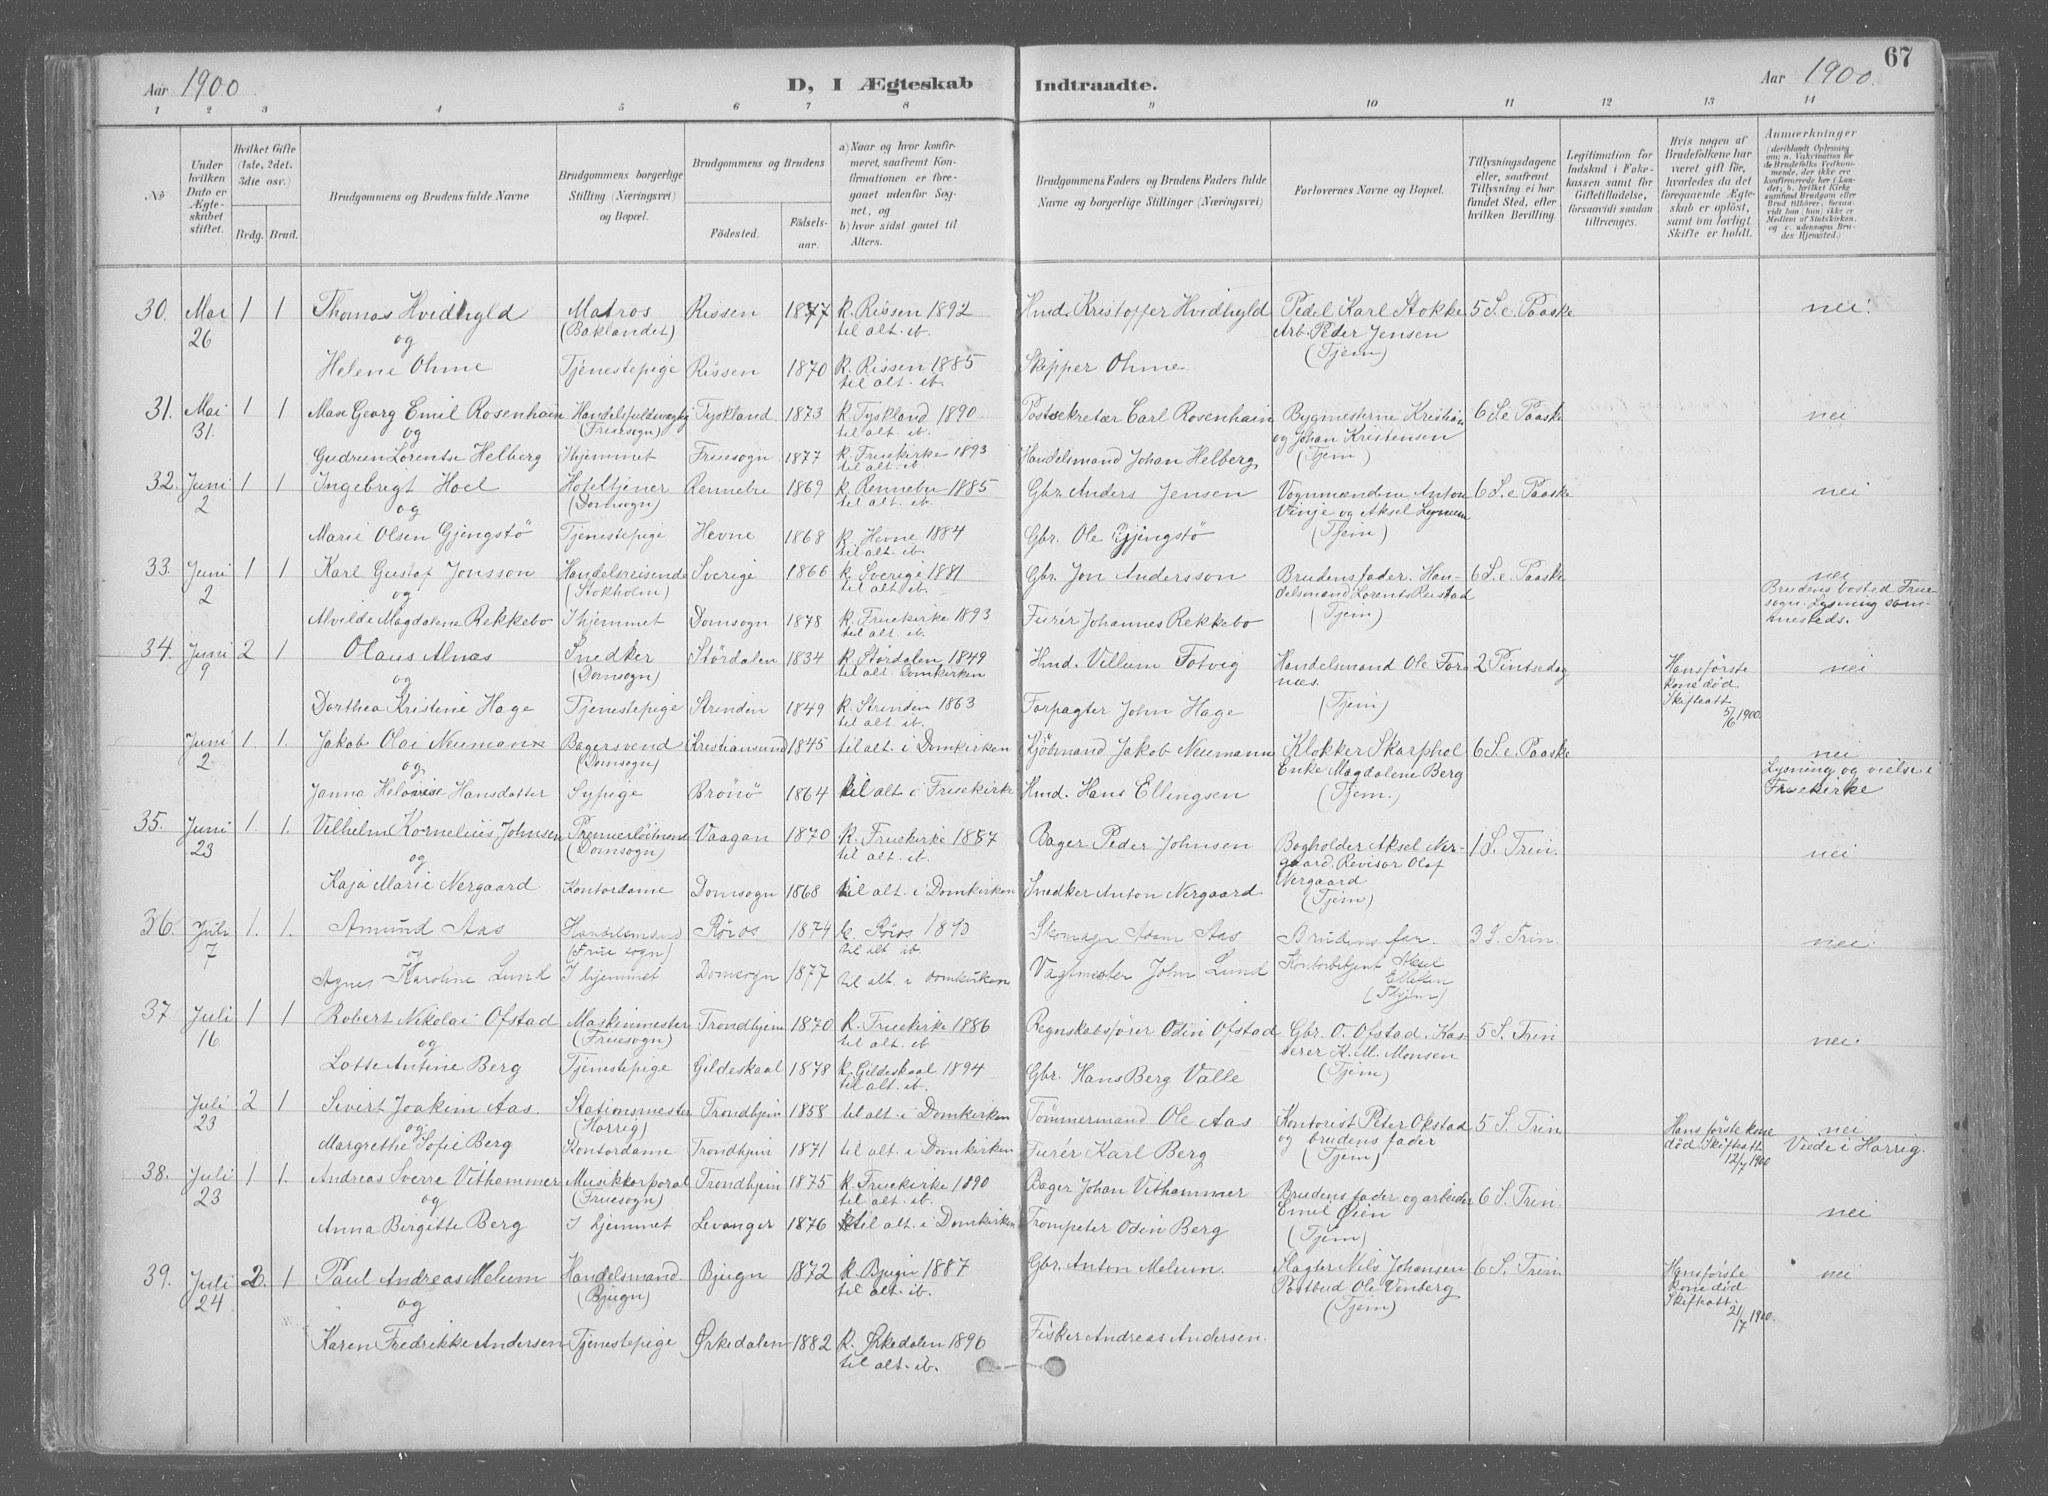 67
Aar 1900. D, I Ægteskab Indtraadte. Aar 1900.
1 2 3 4 5 6 7 8 9 10 11 12 13 14
No
Under hvilken Dato er Ægteskabet stiftet.
Hvilket Gifte (1ste, 2det, 3die osv.)
Brdg. Brud.
Brudgommens og Brudens fulde Navne
Brudgommens borgerlige Stilling (Næringsvei) og Bopæl.
Brudgommens og Brudens
Fødested. Fødselsaar.
a) Naar og hvor konfirmeret, saafremt Konfirmationen er foregaaet udenfor Sognet, og
b) hvor sidst gaaet til Alters.
Brudgommens Faders og Brudens Faders fulde Navne og borgerlige Stillinger (Næringsvei)
Forlovernes Navne og Bopæl.
Tillysningsdagene eller, saafremt Tillysning ei har fundet Sted, efter hvilken Bevilling.
Legitimation for Indskud i Enkekassen samt for Giftetilladelse, forsaavidt saadan tiltrænges.
Hvis nogen af Brudefolkene har været gift før, hvorledes da det foregaaende Ægteskab er opløst, samt om lovligt Skifte er holdt.
Anmærkninger
30. Mai 26 1 1 Thomas Hvidhyld Matros (Baklandet) Rissen 1877 k. Rissen 1892 til alt. ib. Hmd. Kristoffer Hvidhyld Pedel Karl Stokke Arb. Peder Jensen (Tjem) 5 S. e. Paaske nei.
og
Helene Ohme Tjenestepige Rissen 1870 k. Rissen 1885 til alt. ib. Skipper Ohme
31. Mai 31. 1 1 Max Georg Emil Rosenhain (Fruesogn) Tyskland 1873 k. Tyskland 1890. til alt. ib. Postsekretær Carl Rosenhain Bygmesterne Kristian og Johan Kristensen (Tjem) 6 S. e. Paaske nei
og
Gudrun Lorentse Helberg Ihjemmet Fruesogn 1877 k. Fruekirke 1893 til alt. ib. Handelsmand Johan Helberg
32. Juni 2 1 1 Ingebrigt Hoel Hoteltjener (Domsogn) Rennebu 1869 k. Rennebu 1885 til alt. ib. Gbr. Anders Jensen Vognmændene Anton Vinje og Aksel (Tjem) 6 S. e. Paaske nei
og
Marie Olsen Gjengstö Tjenestepige Hevne 1868 k. Hevne 1884 til alt. ib. Gbr. Ole Gjengstö
33. Juni 2 1 1 Karl Gustaf Jonsson Handelsreisende (Stokholm) Sverige 1866 k. Sverige 1881 til alt. ib. Gbr. Jon Andersson Brudens fader. Handelsmand Lorents (Tjem) 6 S. e. Paaske nei Brudens bosted Fruesogn. Lysning sammesteds.
og
Alvilde Magdalene Rekkebo Ihjemmet Domsogn 1878 k. Fruekirke 1893 til alt. ib. Furér Johannes Rekkebo
34. Juni 9 2 1 Olaus Alnæs Snedker (Domsogn) Stördalen 1834 k. Stördalen 1849 til alt. Domkirken Hmd. Villum Fotvig Handelsmand Ole Fornæs. (Tjem) 2 Pintsedag Hans förste kone död Skifteatt. 5/6 1900. nei
og
Dorthea Kristine Hage Tjenestepige Strinden 1849 k. Strinden 1863 til alt. ib. Forpagter John Hage
Juni 2 1. 1. Jakob Olai Neumann Bagersvend (Domsogn) Kristiansund 1845 til alt. i Domkirken Kjöbmand Jakob Neumann Klokker Skarphol Enke Magdalene Berg (Tjem.) 6 S. e. Paaske nei Lysning og vielse i Fruekirke
og
Janna Helovise Hansdatter Sypige Brönö 1864 til alt i Fruekirke Hmd. Hans Ellingsen
35. Juni 23 1. 1. Vilhelm Kornelius Johnsen Premierlöitnant (Domsogn) Vaagan 1870 k. Fruekirke 1887 til alt. ib. Bager Peder Johnsen Bogholder Aksel Nergaard. Revisor Olaf Nergaard (Tjem) 1 S. Trin. nei
og
Kaja Marie Nergaard Kontordame Domsogn 1868 til alt. i Domkirken Snedker Anton Nergaard
36. Juli 7 1. 1. Amund Aas Handelsmand (Frue sogn) Röros 1874 k. Röros til alt. ib. Skomager Adam Aas Brudens far. Kontorbetjent Aksel (Thjem) 3 S. Trin. nei.
og
Agnes Karoline Lund I hjemmet Domsogn 1877 til alt. i Domkirken Vagtmester John Lund
37. Juli 16. 1 1 Robert Nikolai Ofstad Maskinmester (Fruesogn) Trondhjem 1870 k. Fruekirke 1886 til alt. ib Regnskabsförer Odin Ofstad Gbr. O. Ofstad. Kasserer K. M. Monsen (Tjem) 5 S. Trin nei.
og
Lotte Antine Berg Tjenestepige Gildeskaal 1878 k. Gildeskaal 1894 til alt. ib. Gbr. Hans Berg Valle
Juli 23 2 1 Sivert Joakim Aas. Stationsmester (Harrig) Trondhjem 1858 til alt. i Domkirken Tömmermand Ole Aas Kontorist Peter Okstad og brudens fader (Tjem) 5 S. Trin Hans förste kone död Skifteatt. 12/7 1900 nei Viede i Harrig.
og
Margrethe Sofie Berg Kontordame Trondhjem 1871 til alt. i Domkirken Furér Karl Berg
38. Juli 23 1 1. Andreas Sverre Vithammer Musikkorporal (Fruesogn) Trondhjem 1875 k. Fruekirke 1890 til alt. ib. Bager Johan Vithammer Brudens fader og arbeider Emil Öien (Tjem) 6 S. Trin. nei
og
Anna Birgitte Berg I hjemmet Levanger 1876 til alt. i Domkirken Trompeter Odin Berg
39. Juli 24 2. 1 Paul Andreas Melum Handelsmand (Bjugn) Bjugn 1872 k. Bjugn 1887 til alt. ib. Gbr. Anton Melum. Slagter Nils Johansen Postbud Ole Venberg (Tjem) 6 S. Trin. Hans förste kone död Skifteatt. 21/7 1900. nei
og
Karen Fredrikke Andersen Tjenestepige Ørkedalen 1882 k. Ørkedalen 1896 til alt. ib. Fisker Andreas Andersen.